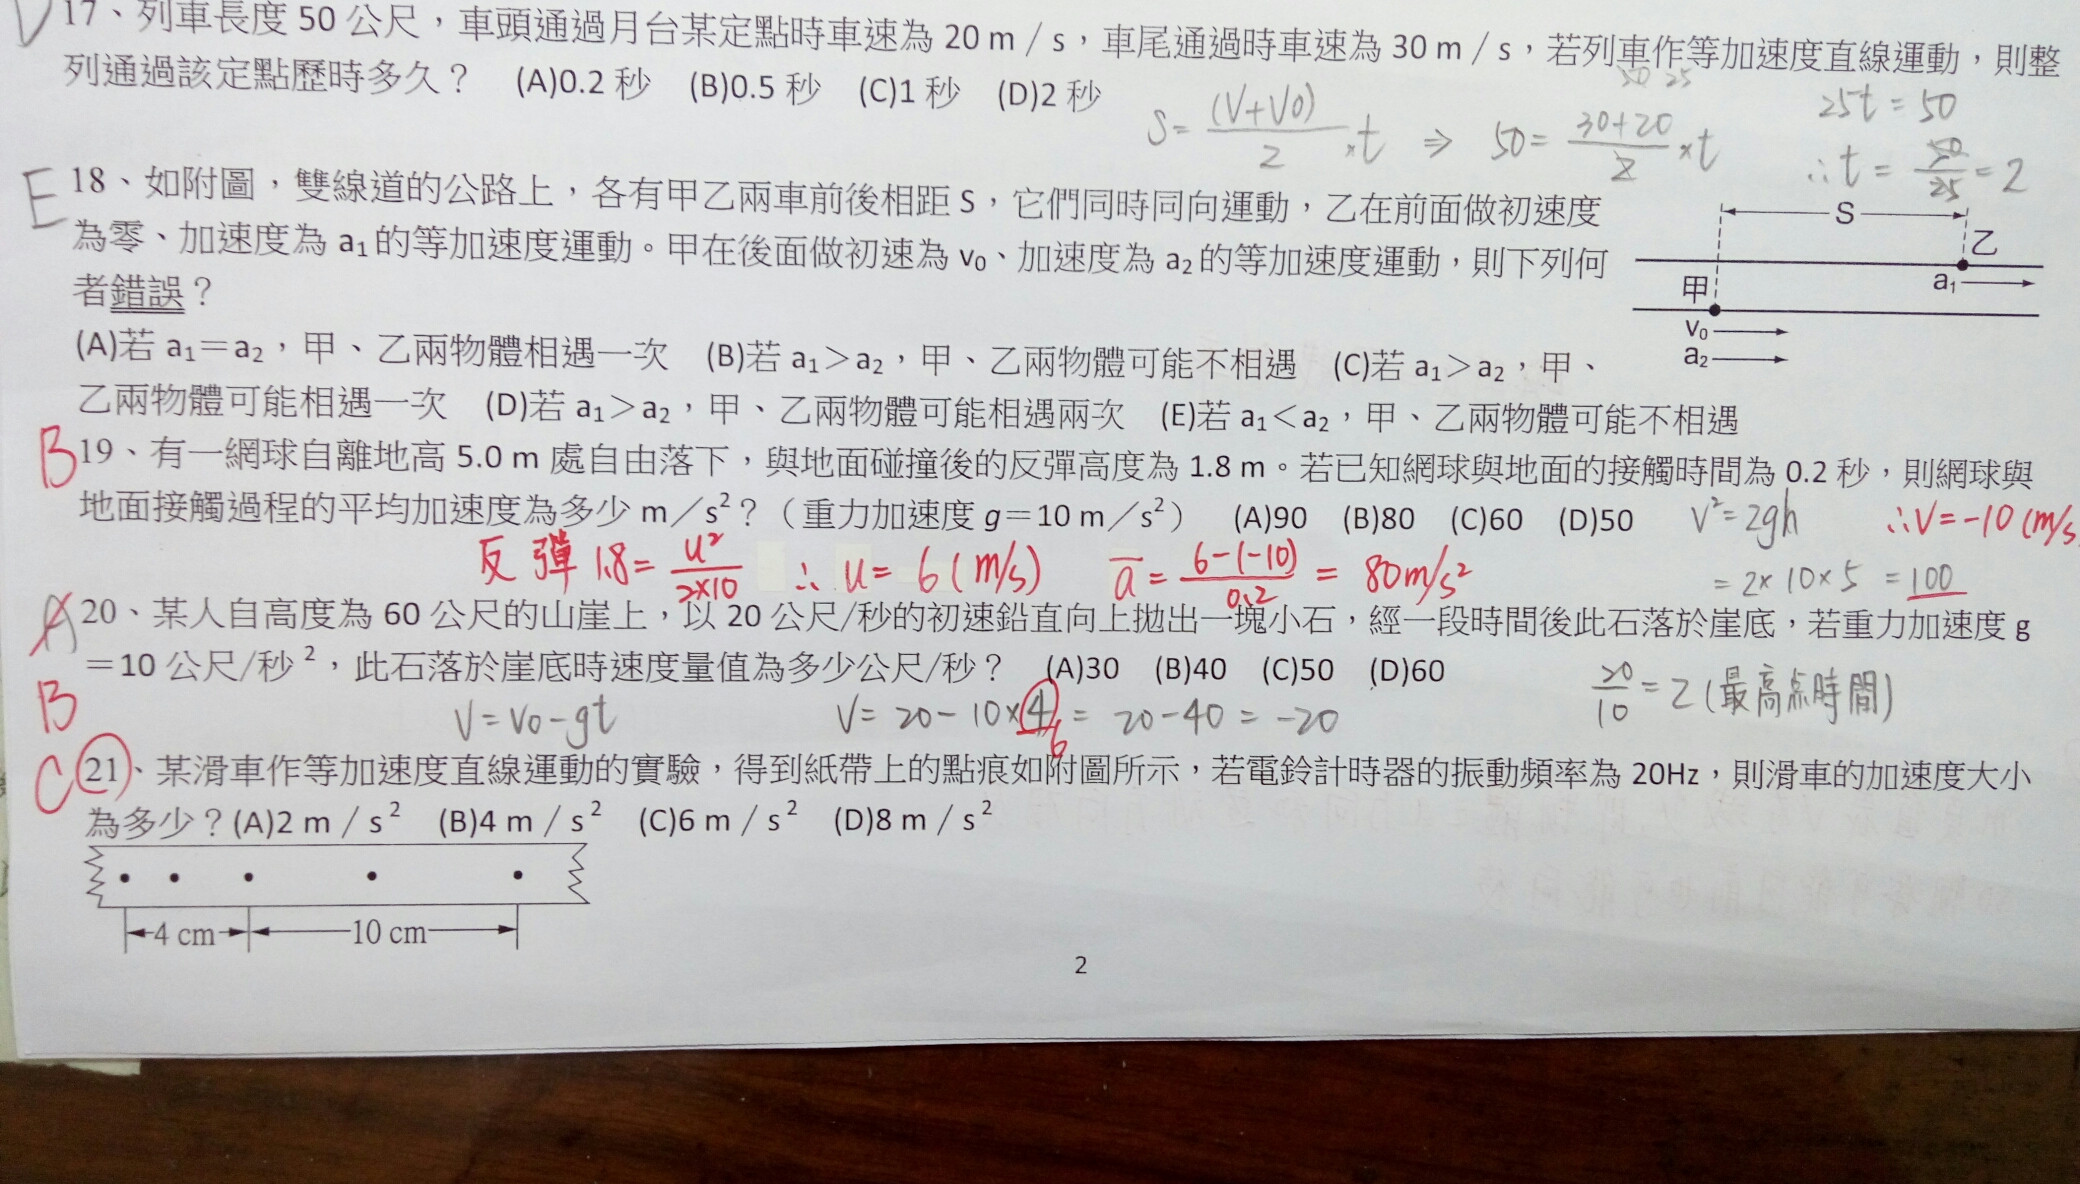 17、列車長度 50 公尺，車頭通過月台某定點時車速為 20 m / s，車尾通過時車速為 30 m / s，若列車作等加速度直線運動，則整
列通過該定點歷時多久？ (A)0.2 秒 (B)0.5 秒 (C)1 秒 (D)2 秒
50 25
S= (V+V0)/2 ×t ⇒ 50= 30+20/2 ×t
25t = 50
∴t = 50/25 = 2
E
18、如附圖，雙線道的公路上，各有甲乙兩車前後相距 S，它們同時同向運動，乙在前面做初速度
為零、加速度為 a₁ 的等加速度運動。甲在後面做初速為 v₀、加速度為 a₂ 的等加速度運動，則下列何
者錯誤？
S
乙
a₁
甲
v₀
a₂
(A)若 a₁＝a₂，甲、乙兩物體相遇一次 (B)若 a₁＞a₂，甲、乙兩物體可能不相遇 (C)若 a₁＞a₂，甲、
乙兩物體可能相遇一次 (D)若 a₁＞a₂，甲、乙兩物體可能相遇兩次 (E)若 a₁＜a₂，甲、乙兩物體可能不相遇
B
19、有一網球自離地高 5.0 m 處自由落下，與地面碰撞後的反彈高度為 1.8 m。若已知網球與地面的接觸時間為 0.2 秒，則網球與
地面接觸過程的平均加速度為多少 m／s²？（重力加速度 g＝10 m／s²） (A)90 (B)80 (C)60 (D)50
V²=2gh ∴V=-10 (m/s
= 2×10×5 = 100
反彈 1.8= u²/2×10 ∴ u= 6 (m/s) a̅ = 6-(-10)/0.2 = 80m/s²
A
20、某人自高度為 60 公尺的山崖上，以 20 公尺/秒的初速鉛直向上拋出一塊小石，經一段時間後此石落於崖底，若重力加速度 g
＝10 公尺/秒²，此石落於崖底時速度量值為多少公尺/秒？ (A)30 (B)40 (C)50 (D)60
B
V=V0-gt V= 20-10×4 = 20-40 = -20
6
20/10 = 2 (最高点時間)
C
21、某滑車作等加速度直線運動的實驗，得到紙帶上的點痕如附圖所示，若電鈴計時器的振動頻率為 20Hz，則滑車的加速度大小
為多少？(A)2 m / s² (B)4 m / s² (C)6 m / s² (D)8 m / s²
4 cm 10 cm
2